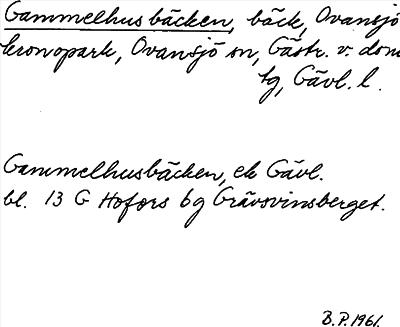 Gammelhusbäcken, bäck, Ovansjö
kronopark, Ovansjö sn, Gästr. v. dom
sg, Gävl. l.
Gammelhusbäcken, ek Gävl.
bl. 13 G Hofors bg Grävsvinsberget.
B.P. 1961.